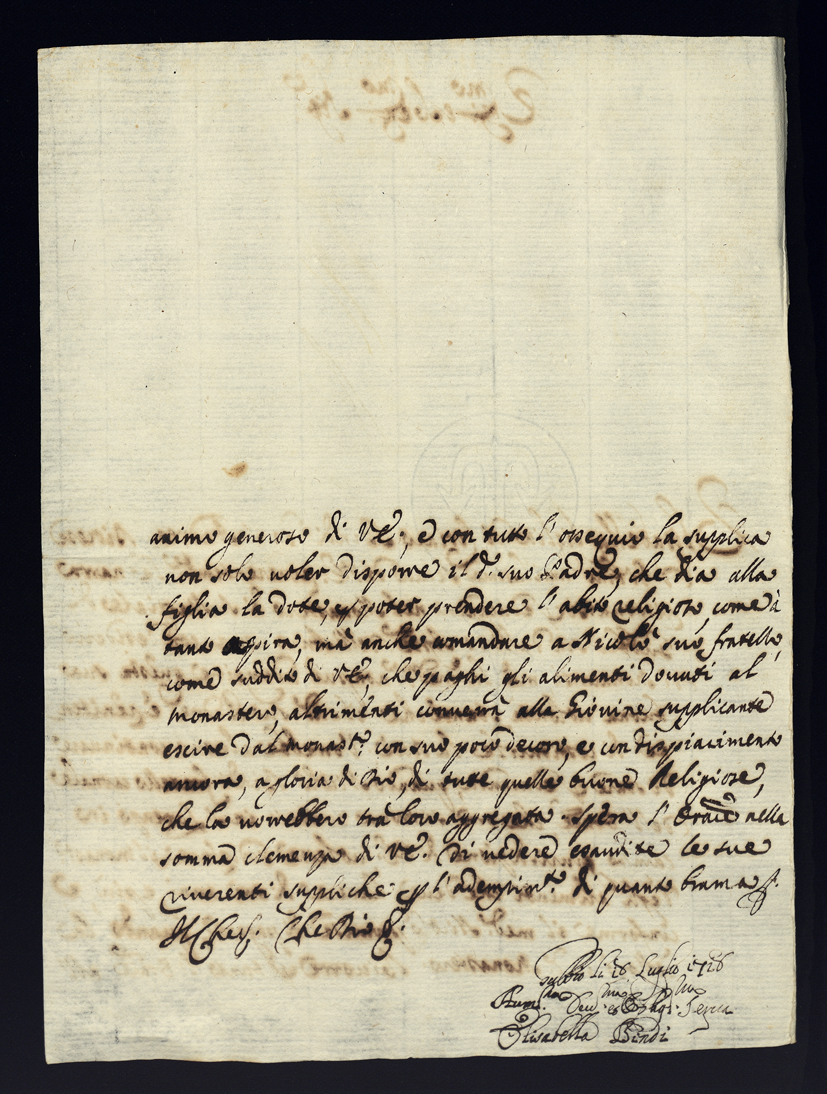 animo generoso di V.E., e con tutto l'ossequio la supplica
non solo voler disporre il d.º suo Padre, che dia alla
figlia la dote, p poter prendere l'abito religioso, come à
tanto aspira, mà anche comandare a Nicolò suo fratello,
come suddito di V.E., che paghi gli alimenti douuti al
monastero, altrimenti conuerrà alla Giouine supplicante
escire dal monast.º con suo poco decoro, e con dispiacimento
ancora, a gloria di Dio, di tutte quelle buone Religiose,
che la uorrebbero trà loro aggregata. Spera l'Oraťe nella
somma clemenza di V.E. di uedere esaudite le sue
riuerenti suppliche p l'adempim.tº di quanto brama
Che Dio &.
li 26 Luglio 1716
Serua
Elisabetta Bindi